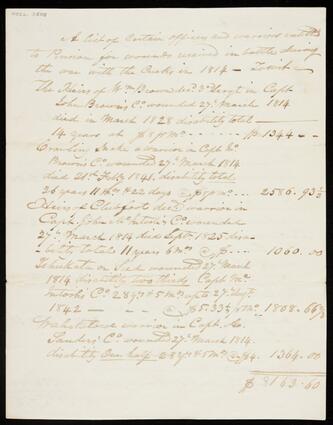 A list of Certain officers and warriors entitled
to Pension for wounds received in battle during
the war with the Creeks in 1814 — Towit
The Heirs of Wm Brown decd 3d Sergt in Capt
John Brown's Co wounded 27th March 1814
died in March 1828 disability total —
14 years at $8 pr mo — $1344 —
Crawling Snake a warrior in Capt
Brown's Co wounded 27th March 1814
died 21st Feby 1841. disability total
26 years 11 Mo & 22 days @ $8 pr mo — 2586.93⅓
Heirs of Clubfoot decd warrior in
Capt John McIntosh's Co wounded
27th March 1814 died Septr 1825 disa
bility total 11 years 6 mo @ $8 — 1060.00
wounded 27th March
1814 disability two thirds Capt Mc
Intosh's Co 28 yrs & 5 Mo up to 27th Augt
1842 — @ $5.33⅓ pr mo 1808.66⅔
warrior in Capt
Sanders' Co wounded 27th March 1814.
disability One half 28 yrs & 5 Mo @ $4. 1364.00
$8163.60